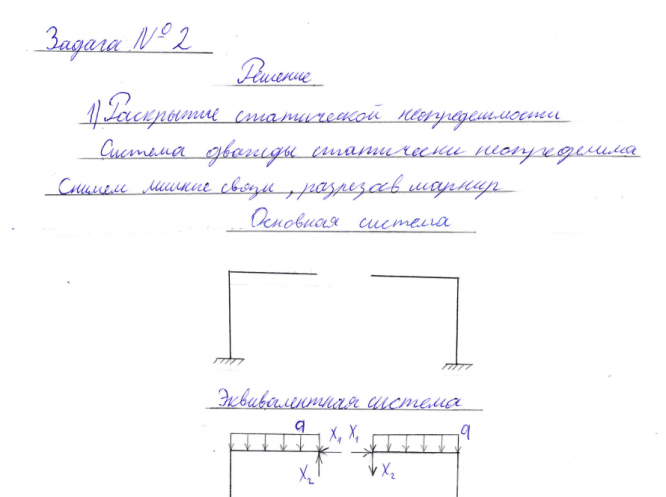 Задача №2
Решение
1) Раскрытие статической неопределимости
Система дважды статически неопределима
Снимем лишние связи, разрезав шарнир
Основная система
Эквивалентная система
q X₁ X₁ q
X₂ X₂